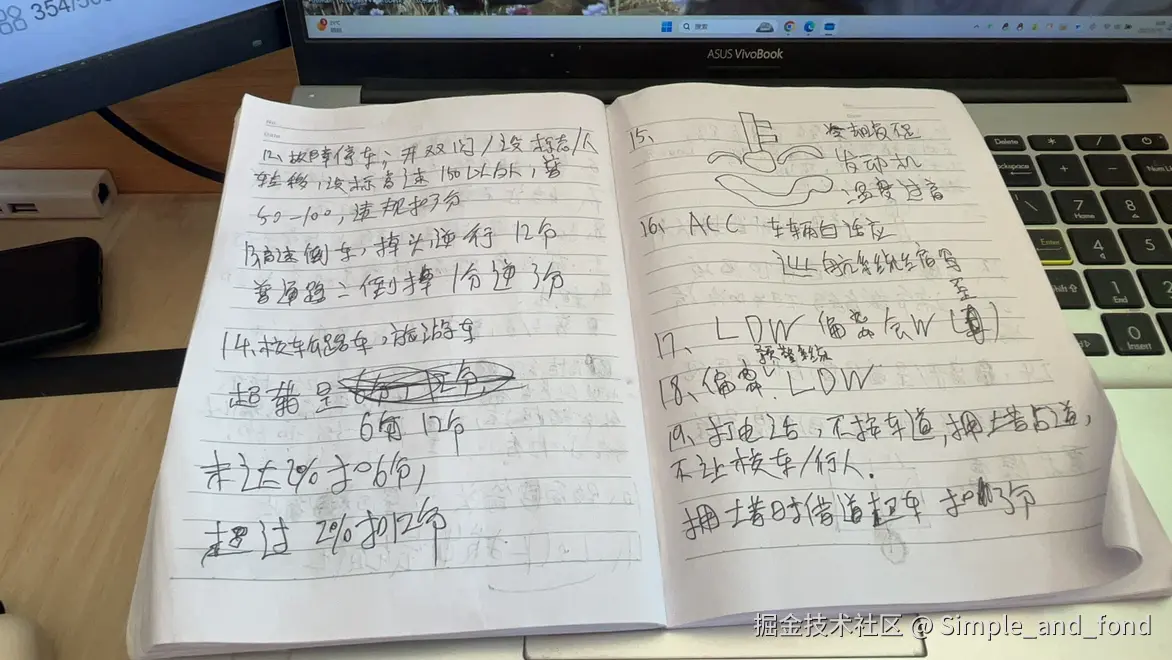 354/50
搜索
ASUS VivoBook
No.
Date
12、故障停车,开双闪/设标志/人
转移,设标高速150以外,普
50-100,违规扣3分
13高速倒车,掉头,逆行 12分
普通路:倒掉1分逆3分
14、校车公路车,旅游车
超载是
6分 12分
未达2%扣6分,
超过 2%扣12分
15、
冷却液
发动机
温度过高
16、ACC 车辆自适应
巡航系统
17、LDW 偏离会W(
至
预警系统
18、偏离 LDW
19、打电话,不按车道,拥堵占道,
不让校车/行人.
拥堵时借道超车 扣 3分
Delete
*
/
-
Num L
+
7
Home
8
Enter
4
5
Shift
1
End
2
0
Insert
掘金技术社区 @ Simple_and_fond